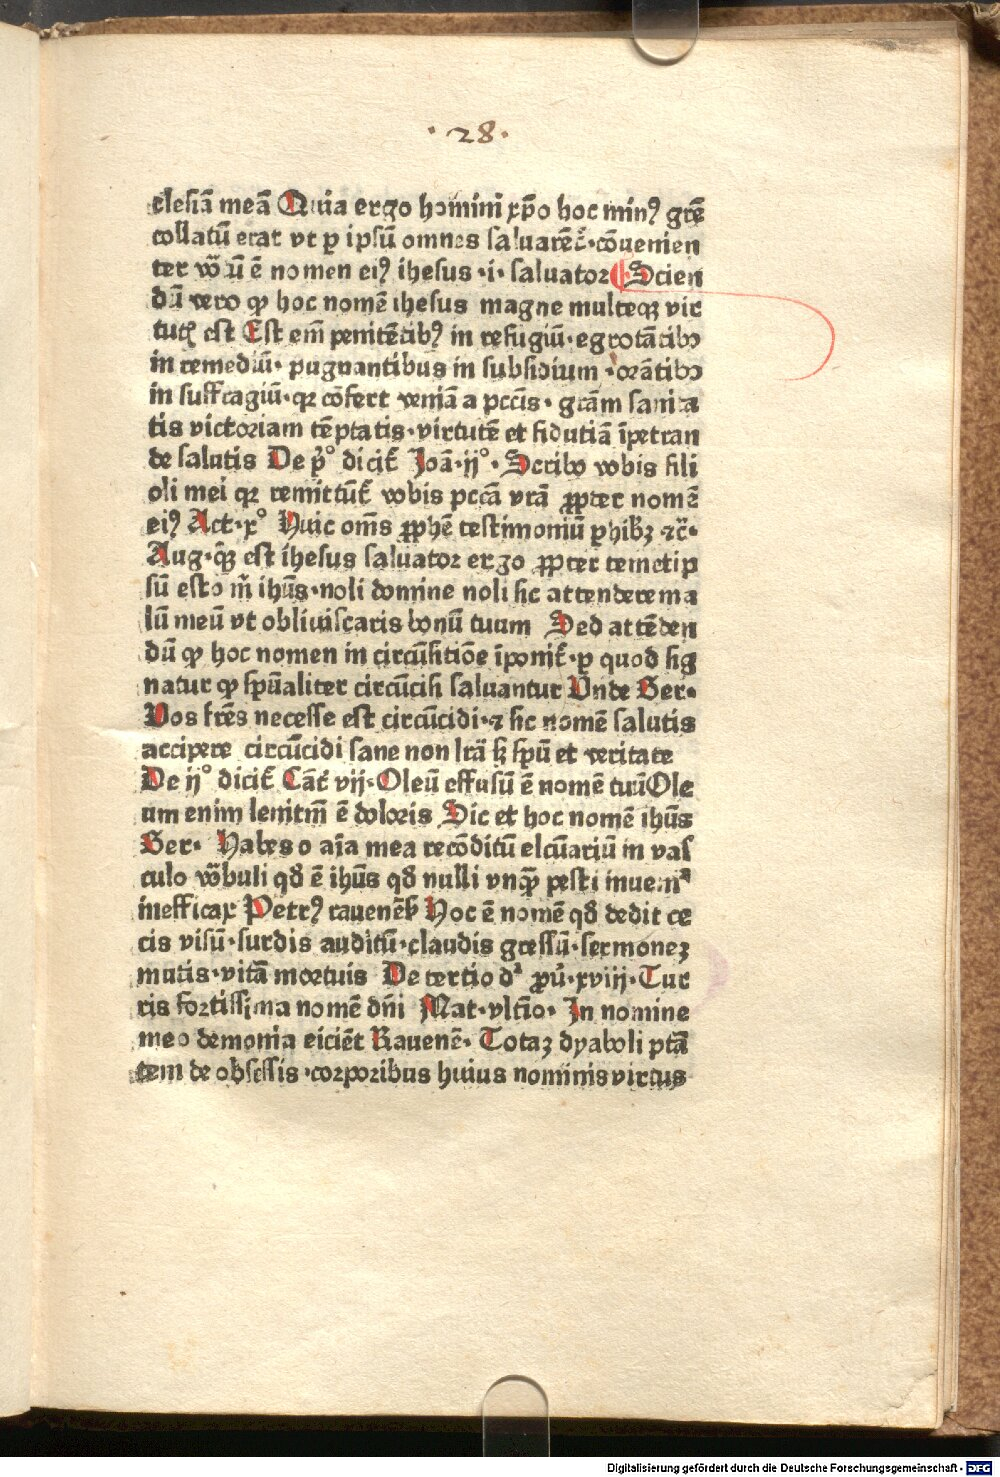 ·28·
clesiā meā Quia ergo homini xp̄o hoc minꝰ grē
collatū erat vt ꝑ ipsū omnes saluarēt̄·cōuenien
ter vō ū ē nomen eiꝰ ihesus ·i· saluator Scien
dū vero ꝙ hoc nomē ihesus magne multeqꝫ vir
tutꝭ est Est em̄ penitētibꝰ in refugiū·egrotātibꝰ
in remediū· pugnantibus in subsidium ·orātibꝰ
in suffragiū·qꝛ cōfert veniā a pccīs· grām sanita
tis victoriam tēptatis·virtutē et fidutiā īpetran
de salutis De pº dicit̄ Joā·ijº· Scribo vobis fili
oli mei qꝛ remittūt̄ vobis pccā vrā ꝓpter nomē
eiꝰ Act·xº Huic om̄s ꝓphē testimoniū ꝑhibꝫ ⁊c̄·
Aug·qͥꝫ est ihesus saluator ergo ꝓpter temetip
sū esto m̄ ihūs·noli domine noli sic attendere ma
lū meū vt obliuiscaris bonū tuum Sed attēden
dū ꝙ hoc nomen in circūsitiōe īponit̄·ꝑ quod sig
natur ꝙ spūaliter circūcisi saluantur Vnde Ber·
Vos frēs necesse est circūcidi·⁊ sic nomē salutis
accipere circūcidi sane non lrā sꝫ spū et veritate
De ijº dicit̄ Cāt̄ vij·Oleū effusū ē nomē tuū Ole
um enim lenitm̄ ē doloris Sic et hoc nomē ihūs
Ber· Habes o aīa mea recōditū elcūariū in vas
culo vōbuli qd̄ ē ihūs qd̄ nulli vnqͣ̄ pesti inuenͬ
inefficax Petrꝰ rauenēs̄ Hoc ē nomē qd̄ dedit ce
cis visū·surdis auditū·claudis gressū·sermoneꝫ
mutis·vitā mortuis De tertio dͬ ꝓū·xviij·Tur
ris fortissima nomē dn̄i Mat·vltīo· In nomine
meo demonia eiciēt Rauenē· Totaꝫ dyaboli ptā
tem de obsessis ·corporibus huius nominis virtus
Digitalisierung gefördert durch die Deutsche Forschungsgemeinschaft - DFG